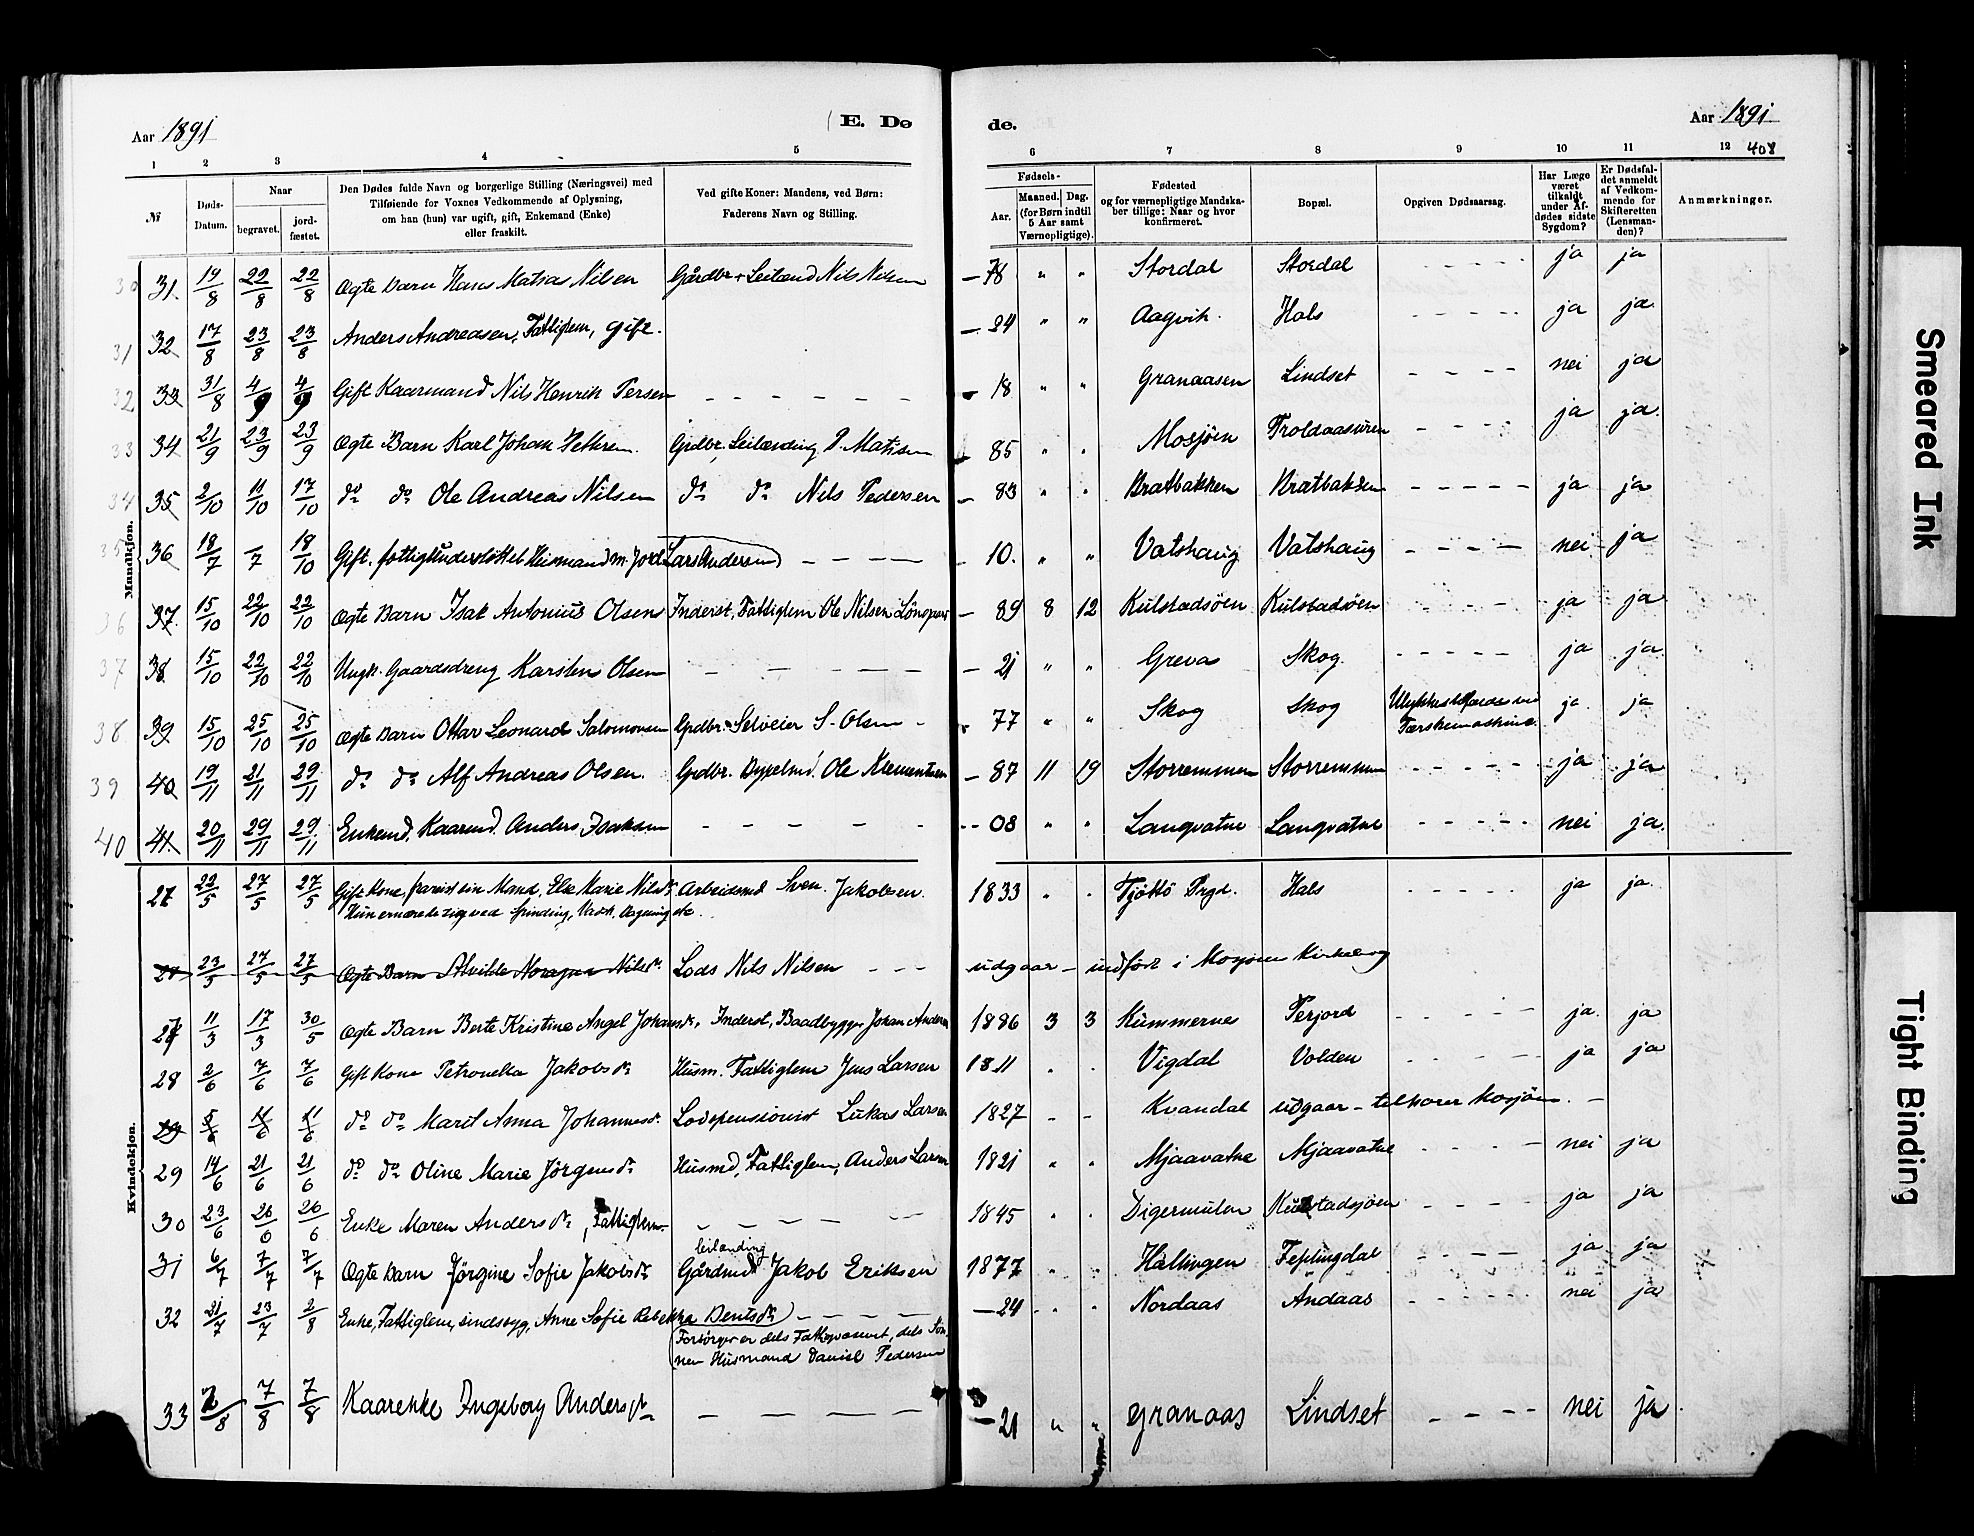 Aar 1891
E. Dø
de.
Aar 1891
1 2 3 4 5 6 7 8 9 10 11 12 408
№
Døds-Datum.
Naar
begravet.
jord-fæstet.
Den Dødes fulde Navn og borgerlige Stilling (Næringsvei) med
Tilføiende for Voxnes Vedkommende af Oplysning,
om han (hun) var ugift, gift, Enkemand (Enke)
eller fraskilt.
Ved gifte Koner: Mandens, ved Børn:
Faderens Navn og Stilling.
Fødsels-
Aar.
Maaned. Dag.
(for Børn indtil
5 Aar samt
Værnepligtige).
Fødested
og for værnepligtige Mandska-
ber tillige: Naar og hvor
konfirmeret.
Bopæl.
Opgiven Dødsaarsag.
Har Læge
været
tilkaldt
under Af-
dødes sidste
Sygdom?
Er Dødsfal-
det anmeldt
af Vedkom-
mende for
Skifteretten
(Lensman-
den)?
Anmærkninger.
Mandkjøn.
30 31. 19/8 22/8 22/8 Ægte Barn Hans Matias Nilsen Gårdbr. Leilænd Nils Nilsen – 78 " " Stordal Stordal - - - - - ja ja
31 32 17/8 23/8 23/8 Anders Andreasen, Fattiglem, gift. – 24 " " Aagvik. Hals - - - - - ja ja
32 33 31/8 4/9 4/9 Gift Kaarmand Nils Henrik Persen - - - - - – 18 " " Granaasen Lindset - - - - nei ja
33 34 21/9 23/9 23/9 Ægte Barn Karl Johan Petersen Grdbr. Leilænding P. Matisen 85 " " Mosjøen Troldaasuren - - - - ja ja.
34 35 2/10 11/10 17/10 do do Ole Andreas Nilsen do do Nils Pedersen – 83 " " Bratbakken Bratbakken - - - - - ja ja
35 36 18/7 –/7 18/10 Gift. fattigunderstøttet Husmand m. Jord Lars Andersen - - - - – 10. " " Vatshaug Vatshaug - - - - nei ja
36 37. 15/10 22/10 22/10 Ægte Barn Isak Antonius Olsen Inderst, Fattiglem Ole Nilsen – 89 8 12 Kulstadsøen Kulstadsøen - - - - ja ja
37 38 15/10 22/10 22/10 Ungk. Gaardsdreng Karstens Olsen - - - - – 21 " " Grevas Skog - - - - - ja ja
38 39 15/10 25/10 25/10 Ægte Barn Ottar Leonard Salomonsen Grdbr. Selveier S. Olsen – 77 " " Skog Skog Ulykkestilfælde ved
Tærskemaskine ja ja
39 40 19/11 21/11 29/11 do do Alf Andreas Olsen. Grdbr. Bygselmd. Ole Klementsen – 87 11 19 Storremmen Storremmen - - - - - ja ja
40 41. 20/11 29/11 29/11 Enkemd. Kaarmd. Anders Isaksen - - - - - – 08 " " Langvatne Langvatne - - - - - nei ja.
Kvindekjøn.
26 22/5 27/5 27/5 Gift Kone, frareist sin Mand, Else Marie Nilsdr. Arbeidsmd Sven Jakobsen. 1833 " " Tjøttø Prgd. Hals - - - - - ja ja.
Hun ernærede sig ved Spinding, Vask, Bagning etc.
27 23/5 27/5 27/5 Ægte Barn Alvilde Nilsdr. Lods Nils Nilsen - - - udgaar – indført i Mosjøen Kirkebog
27 11/3 17/3 30/5 Ægte Barn Berte Kristine Angel Johansdr. Inderst, Baadbygger Johan Andersen 1886 3 3 Kummernes Perjord - - - - - ja. ja
28 2/6 7/6 7/6 Gift Kone Petronella Jakobsdr Husm. Fattiglem Jens Larsen 1811 " " Vigdal Volden - - - - - ja ja
29 5/6 11/6 11/6 do do Marit Anna Johannesdr. Lodspensionist Lukas Larsen 1827 – – Kvandal udgaar – tilhører Mosjøen. –
29 14/6 21/6 21/6 do do Oline Marie Jørgensdr Husmd, Fattiglem, Anders Larsen 1821 " " Mjaavatne Mjaavatne - - - - nei ja
30 23/6 26/6 26/6 Enke Maren Andersdr, Fattiglem. - - - - - 1845 " " Digermulen Kulstadsjøen - - - - ja ja
31 6/7 7/7 7/7 Ægte Barn Jørgine Sofie Jakobsdr Leilænding
Gårdmd Jakob Eriksen 1877 " " Hallingen Feplingdal - - - - ja ja
32 21/7 23/7 2/8 Enke, Fattiglem, sindssyg, Anne Sofie Rebekka Bentsdr - - - - – 24 " " Nordaas Andaas - - - - - nei ja
Forsørger er dels Fattigvæsenet, dels Søn-
nen Husmand Daniel Pedersen
33 2/8 7/8 7/8 Kaarenke Ingeborg Andersdr - - - - – 21 " " Granaas Lindset - - - - nei ja
Smeared Ink
Tight Binding